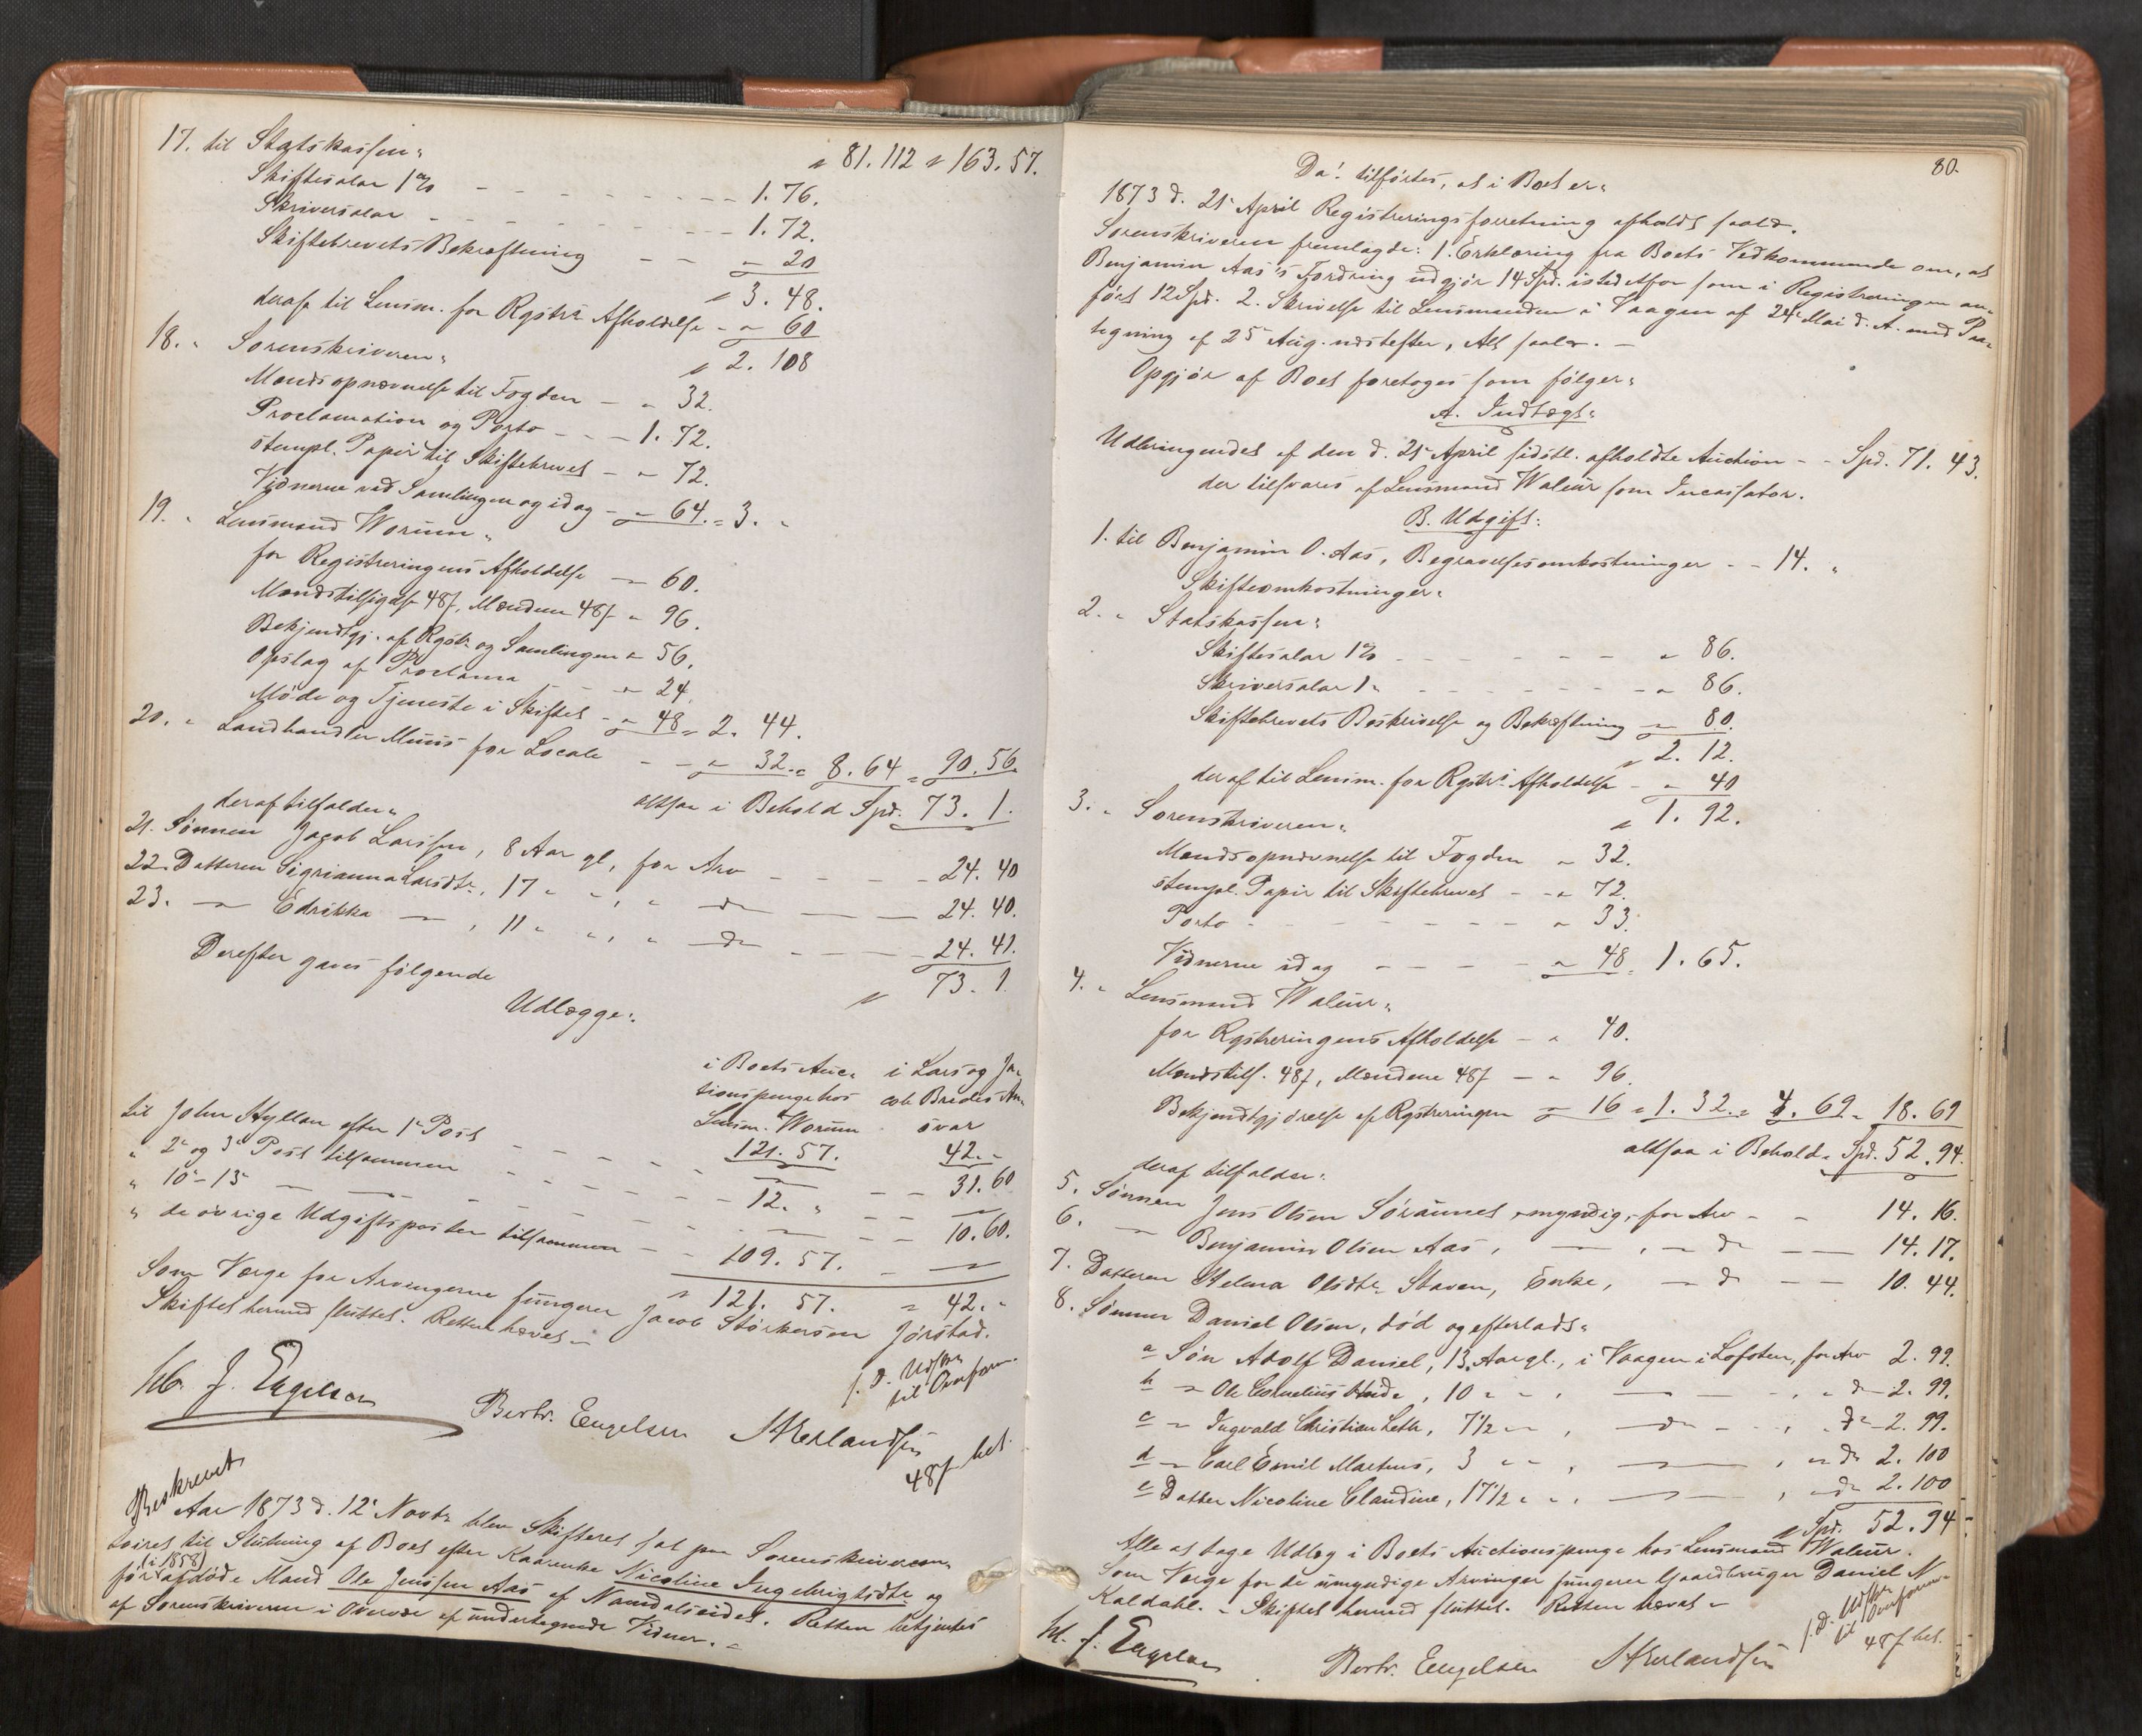 17. til Statskassen:
" 81. 112 " 163. 57.
Skiftesalar 1% - - - 1. 76.
Skriversalar - - - 1. 72.
Skiftebrevets Bekræftning - - " 20
" 3. 48.
deraf til Lensm. for Rgstr: Afholdelse - " 60
" 2. 108
18. " Sorenskriveren:
Mændsopnævnelse til Fogden - " 32.
Proclamation og Porto - - - 1. 72.
stempl. Papir til Skiftebrevet - " 72.
Vidnerne ved Samlingen og idag - " 64. = 3. "
19. " Lensmand Worum:
for Registreringens Afholdelse - 60.
Mændstilsigelse 48 f, Mændene 48 f " 96.
Bekjendtgj. af Rgstr. og Samlingen " 56.
Opslag af Proclama - " 24.
Møde og Tjeneste i Skiftet - " 48 = 2. 44.
20. " Landhandler Muus for Locale - - " 32. = 8. 64 = 90. 56.
altsaa i Behold Spd. 73. 1.
deraf tilfalder:
21. Sønnen Jacob Larssen, 8 Aar gl, for Arv - - - - 24. 40
22. Datteren Sigrianna Larsdtr, 17 " ", " do - - 24. 40.
23. — Edrikka — , 11 " ", " do - - - 24. 41.
" 73. 1.
Derefter gaves følgende
Udlægge:
i Boets Auc- i Lars og Ja-
tionspenge hos cob Brødes An-
Lensm. Worum svar
121. 57. 42. "
til John Hyllan efter 1e Post - - - - - 31. 60
" 2e og 3e Post tilsammen - - - 12. " - - —
" 10e - 13e — — - - - — - - 10. 60.
" de øvrige Udgiftsposter tilsammen - - 109. 57. - —
" 121. 57. " 42. "
Som Værge for Arvingerne fungerer Jacob Størkersen Jørstad.
Skiftet hermed sluttet. Retten hævet -
J. Engelsen
Bertr. Engelsen
Beskrevet
48 f bet.
Aar 1873 d. 12e Novbr blev Skifteret sat paa Sorenskrivercon-
toiret til Slutning af Boet efter Kaarenke Nicoline Ingebrigtsdtr og
før (i 1858) afdøde Mand Ole Jenssen Aas af Namdalseidet. Retten betjentes
af Sorenskriveren i Overvær af undertegnede Vidner. -
80.
Da: tilførtes, at i Boet er:
1873 d. 21 April Registreringsforretning afholdt saald.
Sorenskriveren fremlagde: 1. Erklæring fra Boets Vedkommende om, at
Benjamin Aas's Fordring udgjør 14 Spd. istedetfor som i Registreringen an-
ført 12 Spd. 2. Skrivelse til Lensmanden i Vaagen af 24e Mai d. A. med Paa-
tegning af 25e Aug. næstefter, Alt saalr. -
Opgjør af Boet foretoges som følger:
A. Indtægt:
Udbringendet af den d. 21 April sidstl. afholdte Auction - - Spd. 71. 43.
der tilsvares af Lensmand Waleur som Incassator.
B. Udgift:
1. til Benjamin O. Aas, Begravelsesomkostninger - - 14. "
Skifteomkostninger:
2. " Statskassen:
Skiftesalar 1% - - - - " 86.
Skriversalar 1 " - - - - " 86.
Skiftebrevets Beskrivelse og Bekræftning " 80.
" 2. 12.
deraf til Lensm. for Rgstr: Afholdelse - " 40
" 1. 92.
3. " Sorenskriveren:
Mændsopnævnelse til Fogden " 32.
stempl. Papir til Skiftebrevet - " 72.
Porto - - - - - " 33.
Vidnerne idag - - - - " 48 = 1. 65.
4. " Lensmand Waleur:
for Rgstreringens Afholdelse - " 40.
Mændstils. 48 f, Mændene 48 f - " 96.
Bekjendtgjørelse af Rgstreringen " 16 = 1. 32. = 4. 69 = 18. 69
altsaa i Behold Spd. 52. 94.
deraf tilfalder:
5. Sønnen Jens Olsen Søraunet, myndig, for Arv - - 14. 16.
6. — Benjamin Olsen Aas, — , - do - - 14. 17.
7. Datteren Helena Olsdtr Staven, Enke, - do - - 10. 44.
8. Sønnen Daniel Olsen, død og efterladt:
a Søn Adolf Daniel, 13 Aar gl., i Vaagen i Lofoten, for Arv 2. 99.
b " Ole Cornelius , 10 " " , — - , " do 2. 99.
c " Ingvald Christian Leth, 7½ " " , do - , " do 2. 99.
d " Carl Emil Martens, 3 " " , — , " do 2. 100
e Datter Nicoline Claudine, 17½ " " , — , " do 2. 100
" Spd. 52. 94
Alle at tage Udlæg i Boets Auctionspenge hos Lensmand Waleur.
Som Værge for de umyndige Arvinger fungerer Gaardbruger Daniel N.
Kaldahl. - Skiftet hermed sluttet. Retten hævet -
J. Engelsen
Bertr. Engelsen
48 f bet.